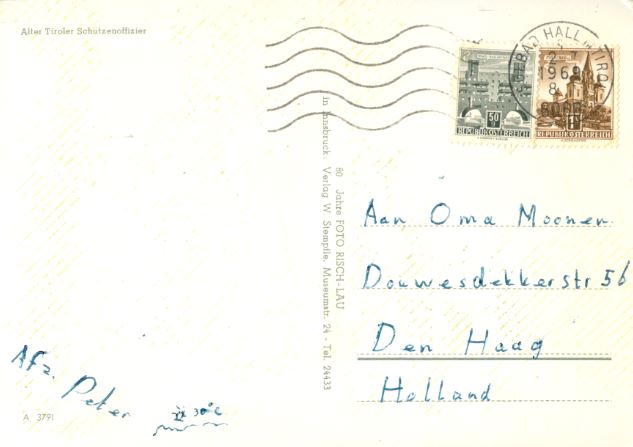 Alter Tiroler Schützenoffizier
BAD HALL IN TIROL
1968
8
50
REPUBLIK ÖSTERREICH
REPUBLIK ÖSTERREICH
80 Jahre FOTO RISCH-LAU
in Innsbruck Verlag W. Stempfle, Museumstr. 24 - Tel. 24433
Aan Oma Moonen
Douwesdekkerstr 56
Den Haag
Holland
Afz. Peter
30°C
A 3791